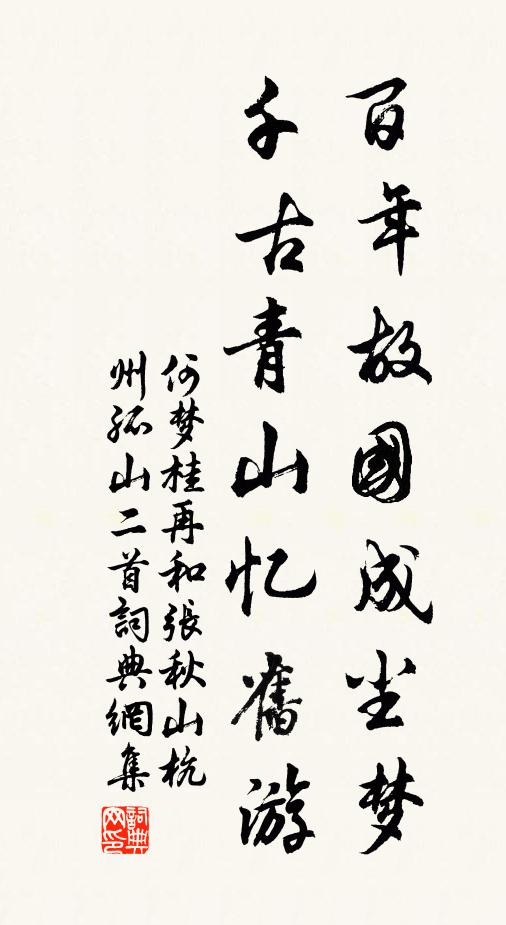 百年故國成尘梦
千古青山忆舊游
何梦桂再和張秋山杭
州孤山二首詞典網集
詞典网印